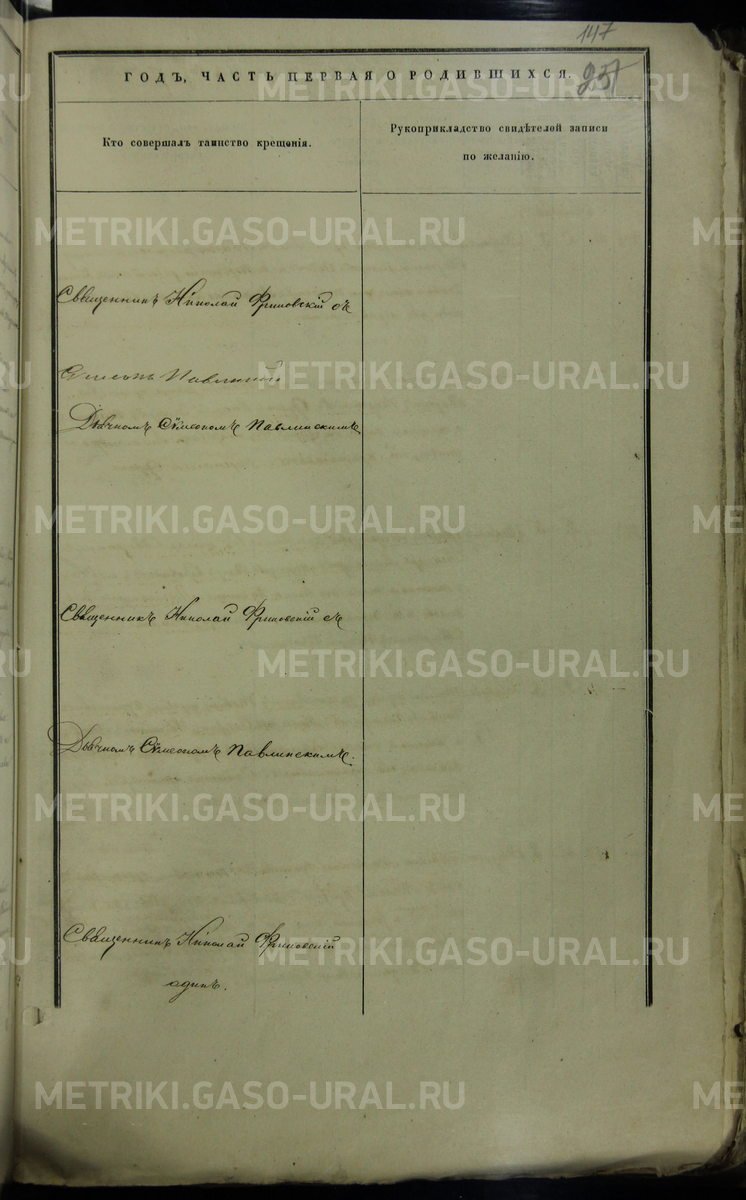 147
257
ГОДЪ, ЧАСТЬ ПЕРВАЯ О РОДИВШИХСЯ.
Кто совершалъ таинство крещенія.
Рукоприкладство свидѣтелей записи
по желанію.
METRIKI.GASO-URAL.RU
Священникъ Николай Фриновскій съ
Дьячкомъ Сѵмеономъ Павлинскимъ
Священникъ Николай Фриновскій съ
Дьячкомъ Сѵмеономъ Павлинскимъ.
Священникъ Николай Фриновскій
адинъ.